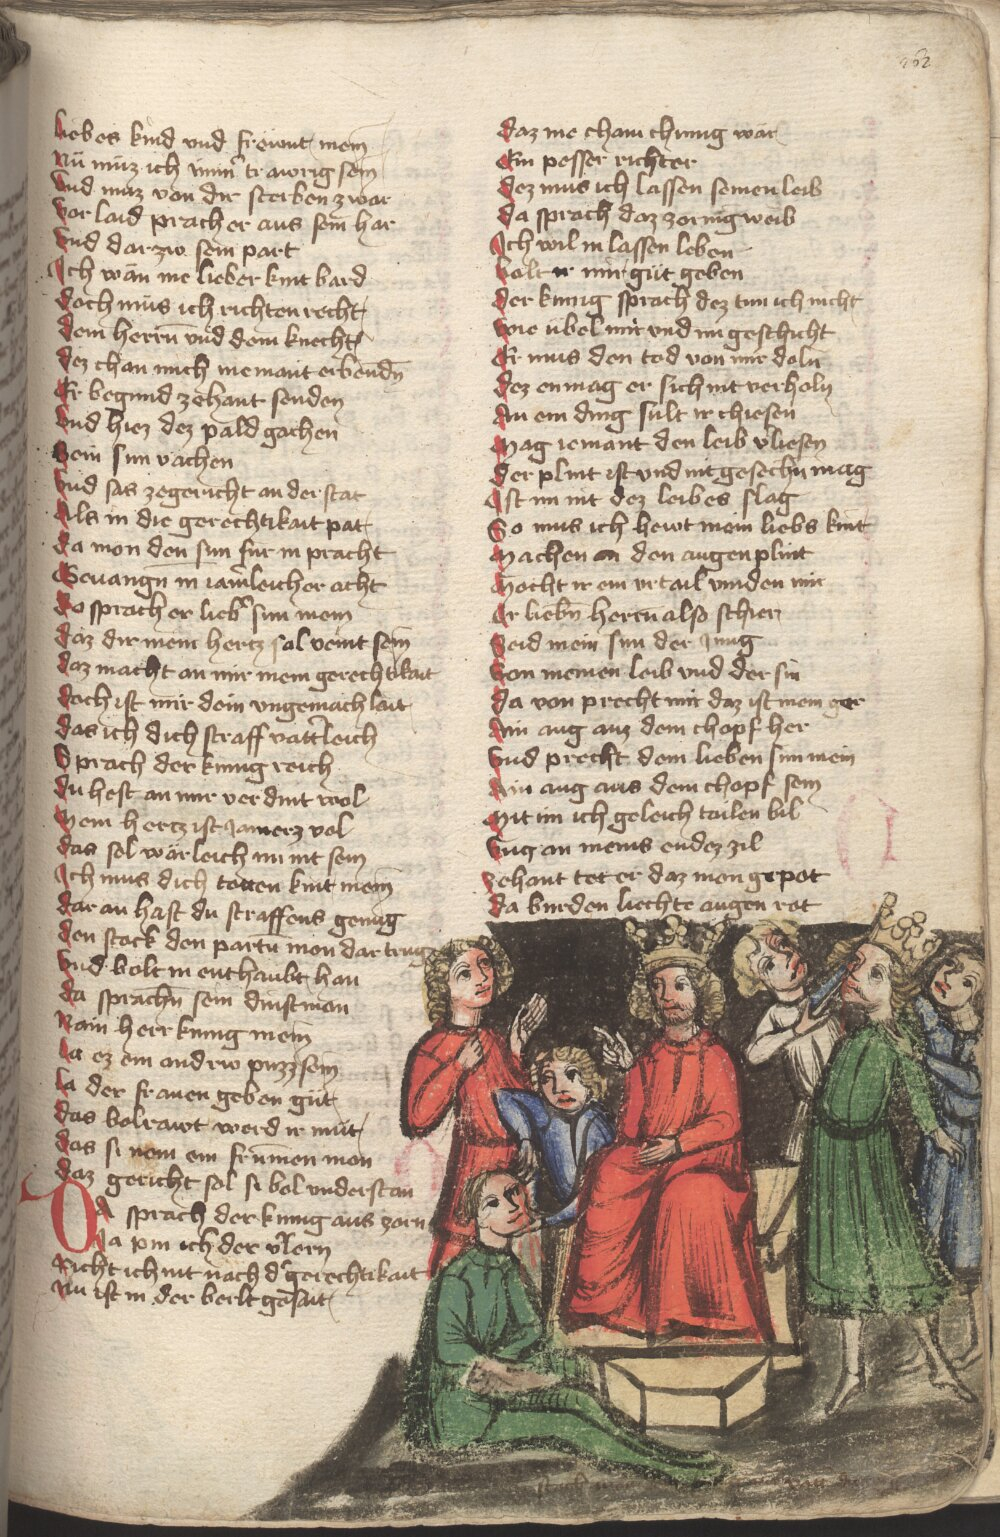 262
liebes kind vnd frewnt mein
Nu muz ich im̄ er trawrig sein
Vnd muz von dir sterben zwar
Vor laid prach er aus sein har
Vnd darzw sein part
Ich wän nie lieber kint ward
doch müs ich richten recht
dem herrn vnd dem knecht
dez chan mich niemant erbendn̄
Er begund zehant senden
Vnd hiez dez pald gachen
Sein sun vachen
Vnd sas zegericht an der stat
Als in die gerechtikait pat
da mon den sun für in pracht
Gevangn̄ in iam̄leicher acht
do sprach er lieb͛ sun mein
daz dir mein hertz sol veint sein
daz macht an mir mein gerechtikait
doch ist mir dein vngemach lait
das ich dich straff vat͛leich
Sprach der kunig reich
du hest an mir verdint wol
Mein hertz ist Jamerz vol
das sol wärleich nu nit sein
Ich mus dich totten kint mein
dar an hast du straffens genug
den stock den partn̄ mon dar trug
Vnd wolt in enthaubt han
da sprachn̄ sein dinstman
Nain herr kunig mein
la ez ein andrw puzz sein
la der frauen geben güt
das wolrawt werd ir müt
das si nem ein frumen mon
daz gericht sol si wol vnderstan
Da sprach der kunig aus zorn
Ja pin ich der v͛lorn
Richt ich nit nach d͛ gerechtikait
Nu ist in der werlt gesait
daz nie cham chunig wär
Ein pesser richter
dez mus ich lassen seinen leib
da sprach daz zornig weib
Ich wil in lassen leben
Wolt ir mir güt geben
der kunig sprach dez tun ich nicht
wie übel mir vnd im geschicht
Er mus den tod von mir doln
dez en mag er sich nit verholn
An ein ding sült ir chiesen
Mag iemant den leib v͛liesen
der plint ist vnd nit gesechn̄ mag
Ist im nit dez leibes slag
So mus ich hewt mein liebs kint
Machen an den augen plint
Mocht ir ein vrtail vinden mir
Ir liebn̄ herrn also schier
Seid mein sun der Jung
Von meinen leib vnd der sin
da von precht mir daz ist mein ger
Ain aug auz dem chopf her
Vnd precht dem lieben sun mein
Ain aug aus dem chopf sein
Mit im ich geleich tailen wil
Vncz an meins endez zil
zehant tet er daz mon gepot
da wurden liechte augen rot